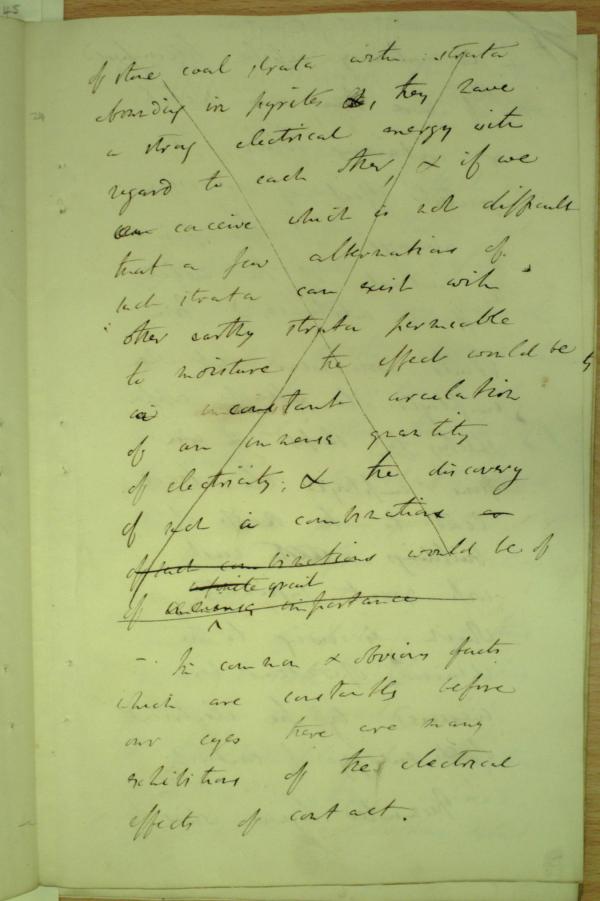 of stone coal strata with strata
abounding in pyrites &, they have
a strong electrical energy with
regard to each other, & if we
can conceive which is not difficult
that a few alternations of
such strata can exist with
other earthy strata permeable
to moisture the effect would be
a constant circulation
of an immense quantity
of electricity; & the discovery
of such a combination
of such combinations would be of
infinite great
of immense importance
– In common & obvious facts
which are constantly before
our eyes there are many
exhibitions of the electrical
effects of contact.